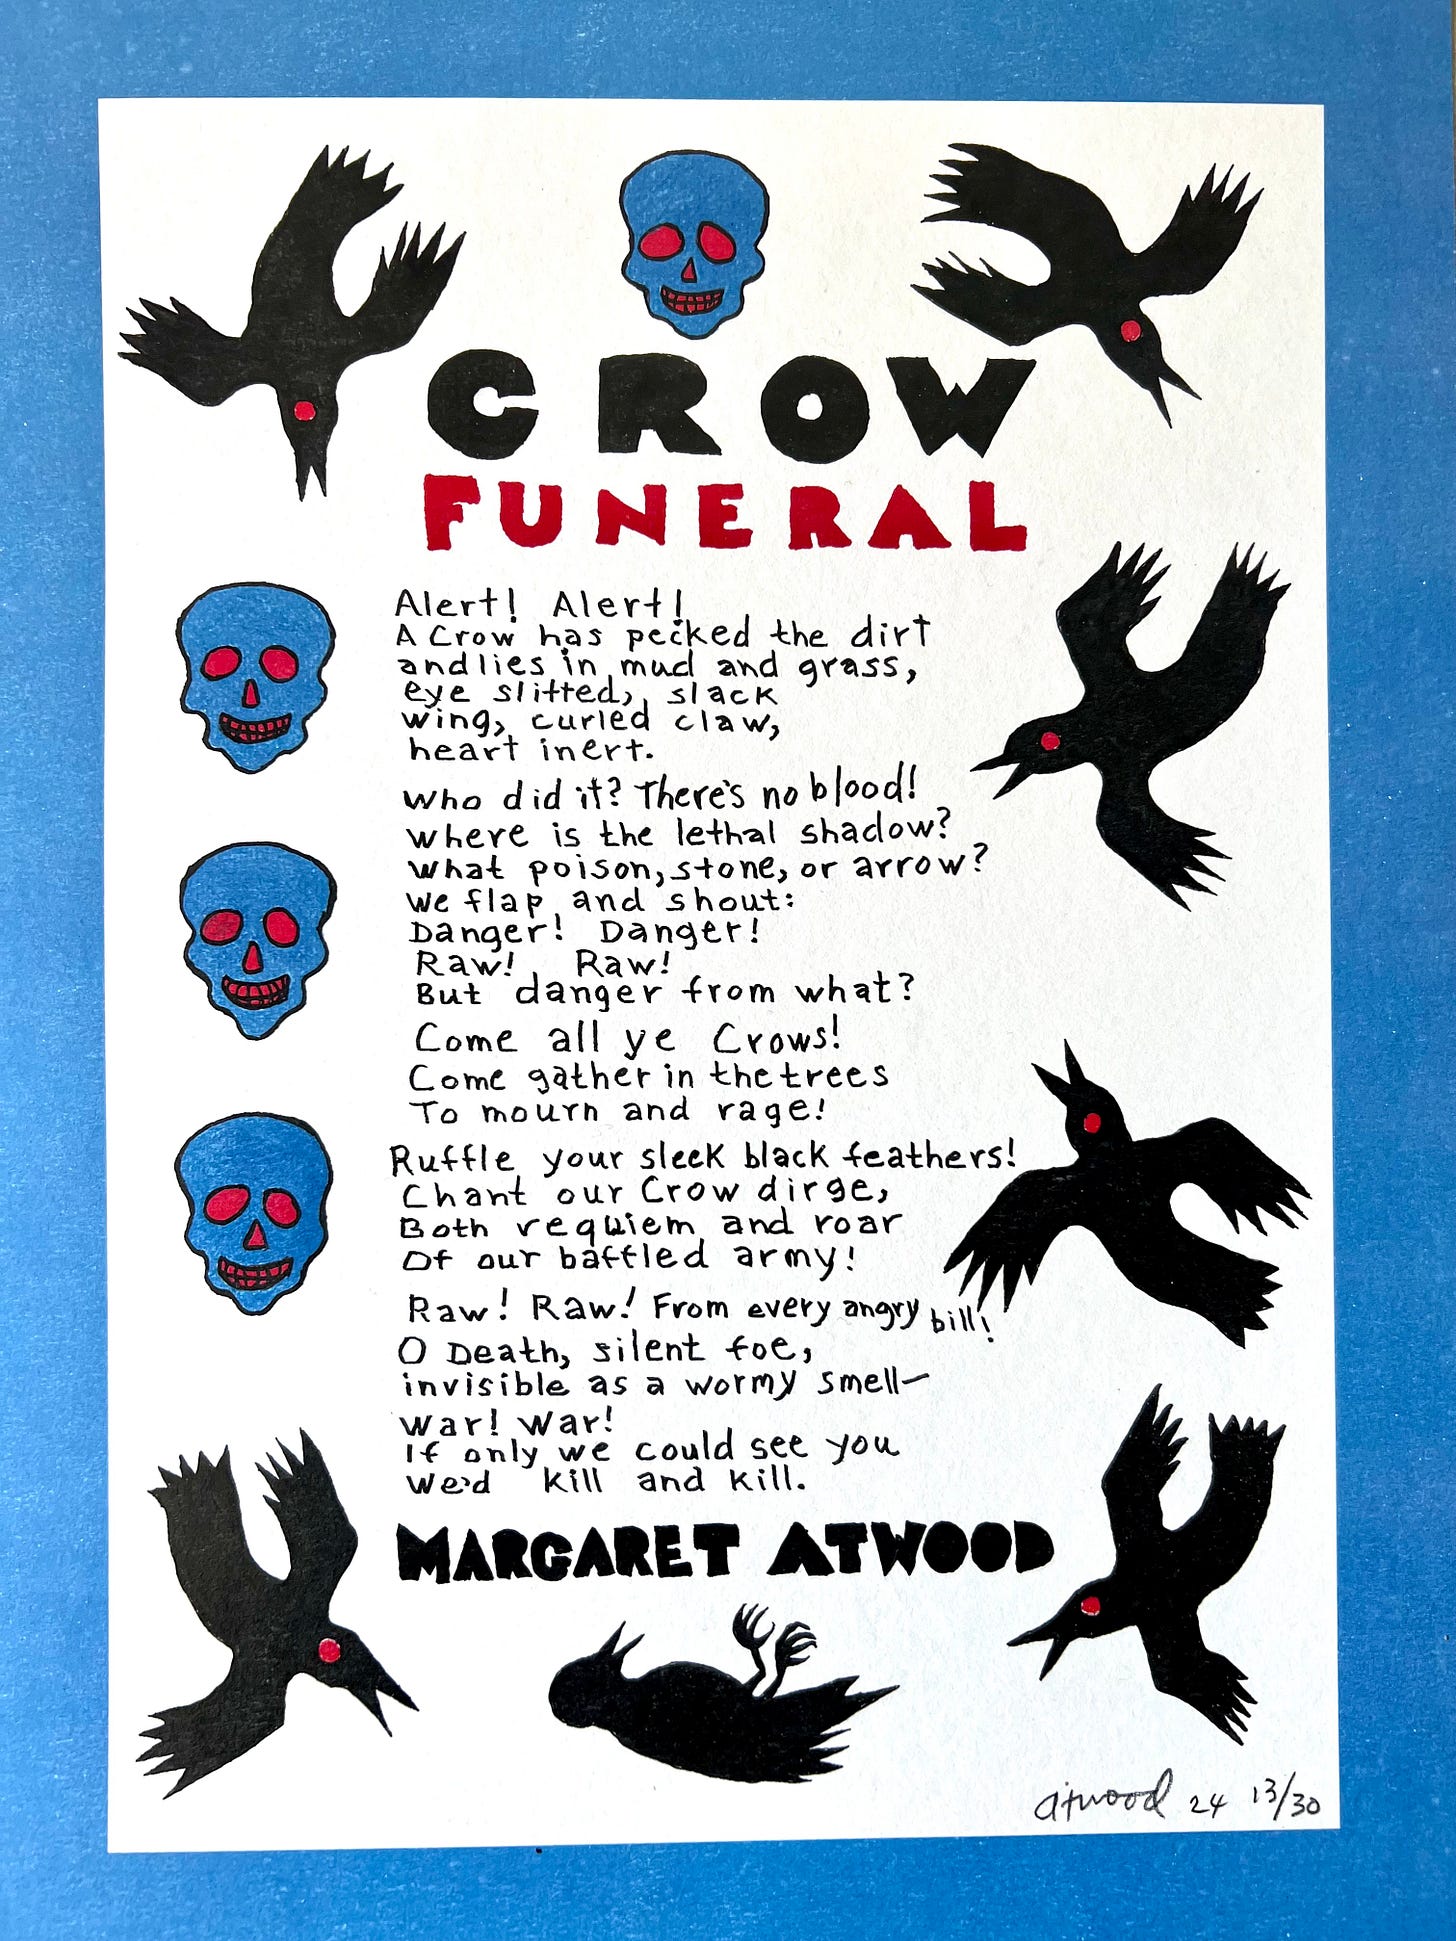 CROW
FUNERAL
Alert! Alert!
A Crow has pecked the dirt
and lies in mud and grass,
eye slitted, slack
wing, curled claw,
heart inert.
Who did it? There's no blood!
where is the lethal shadow?
what poison, stone, or arrow?
We flap and shout:
Danger! Danger!
Raw! Raw!
But danger from what?
Come all ye Crows!
Come gather in the trees
To mourn and rage!
Ruffle your sleek black feathers!
Chant our Crow dirge,
Both requiem and roar
Of our baffled army!
Raw! Raw! From every angry bill!
O Death, silent foe,
invisible as a wormy smell—
War! War!
If only we could see you
We'd kill and kill.
MARGARET ATWOOD
Atwood 24 13/30